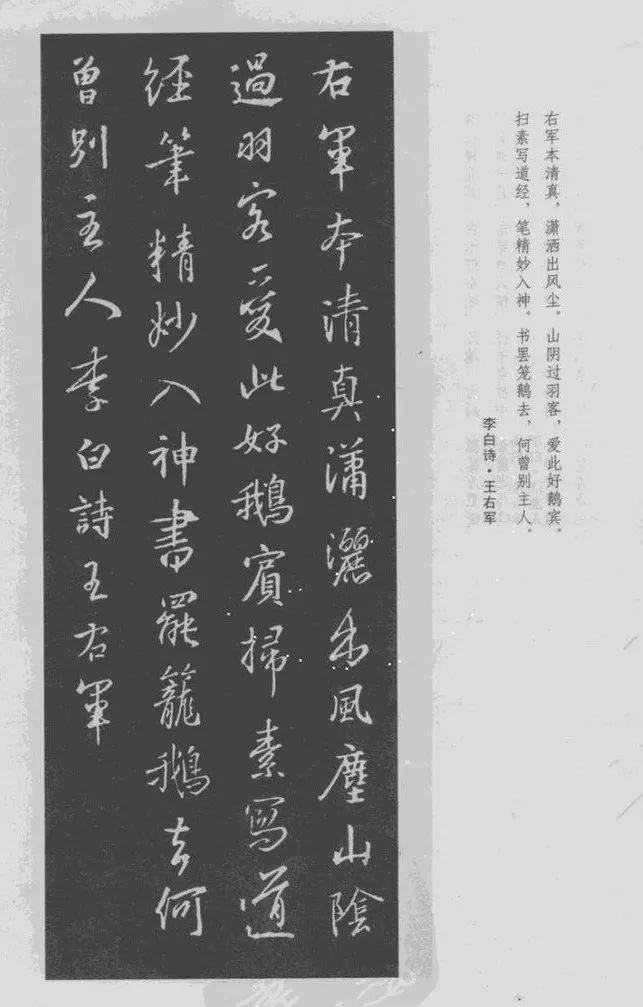 右军本清真，潇洒出风尘。山阴过羽客，爱此好鹅宾。
扫素写道经，笔精妙入神。书罢笼鹅去，何曾别主人。
李白诗·王右军
右軍本清真瀟灑出風塵山陰
過羽客愛此好鵝賓掃素寫道
經筆精妙入神書罷籠鵝去何
曾別主人李白詩王右軍